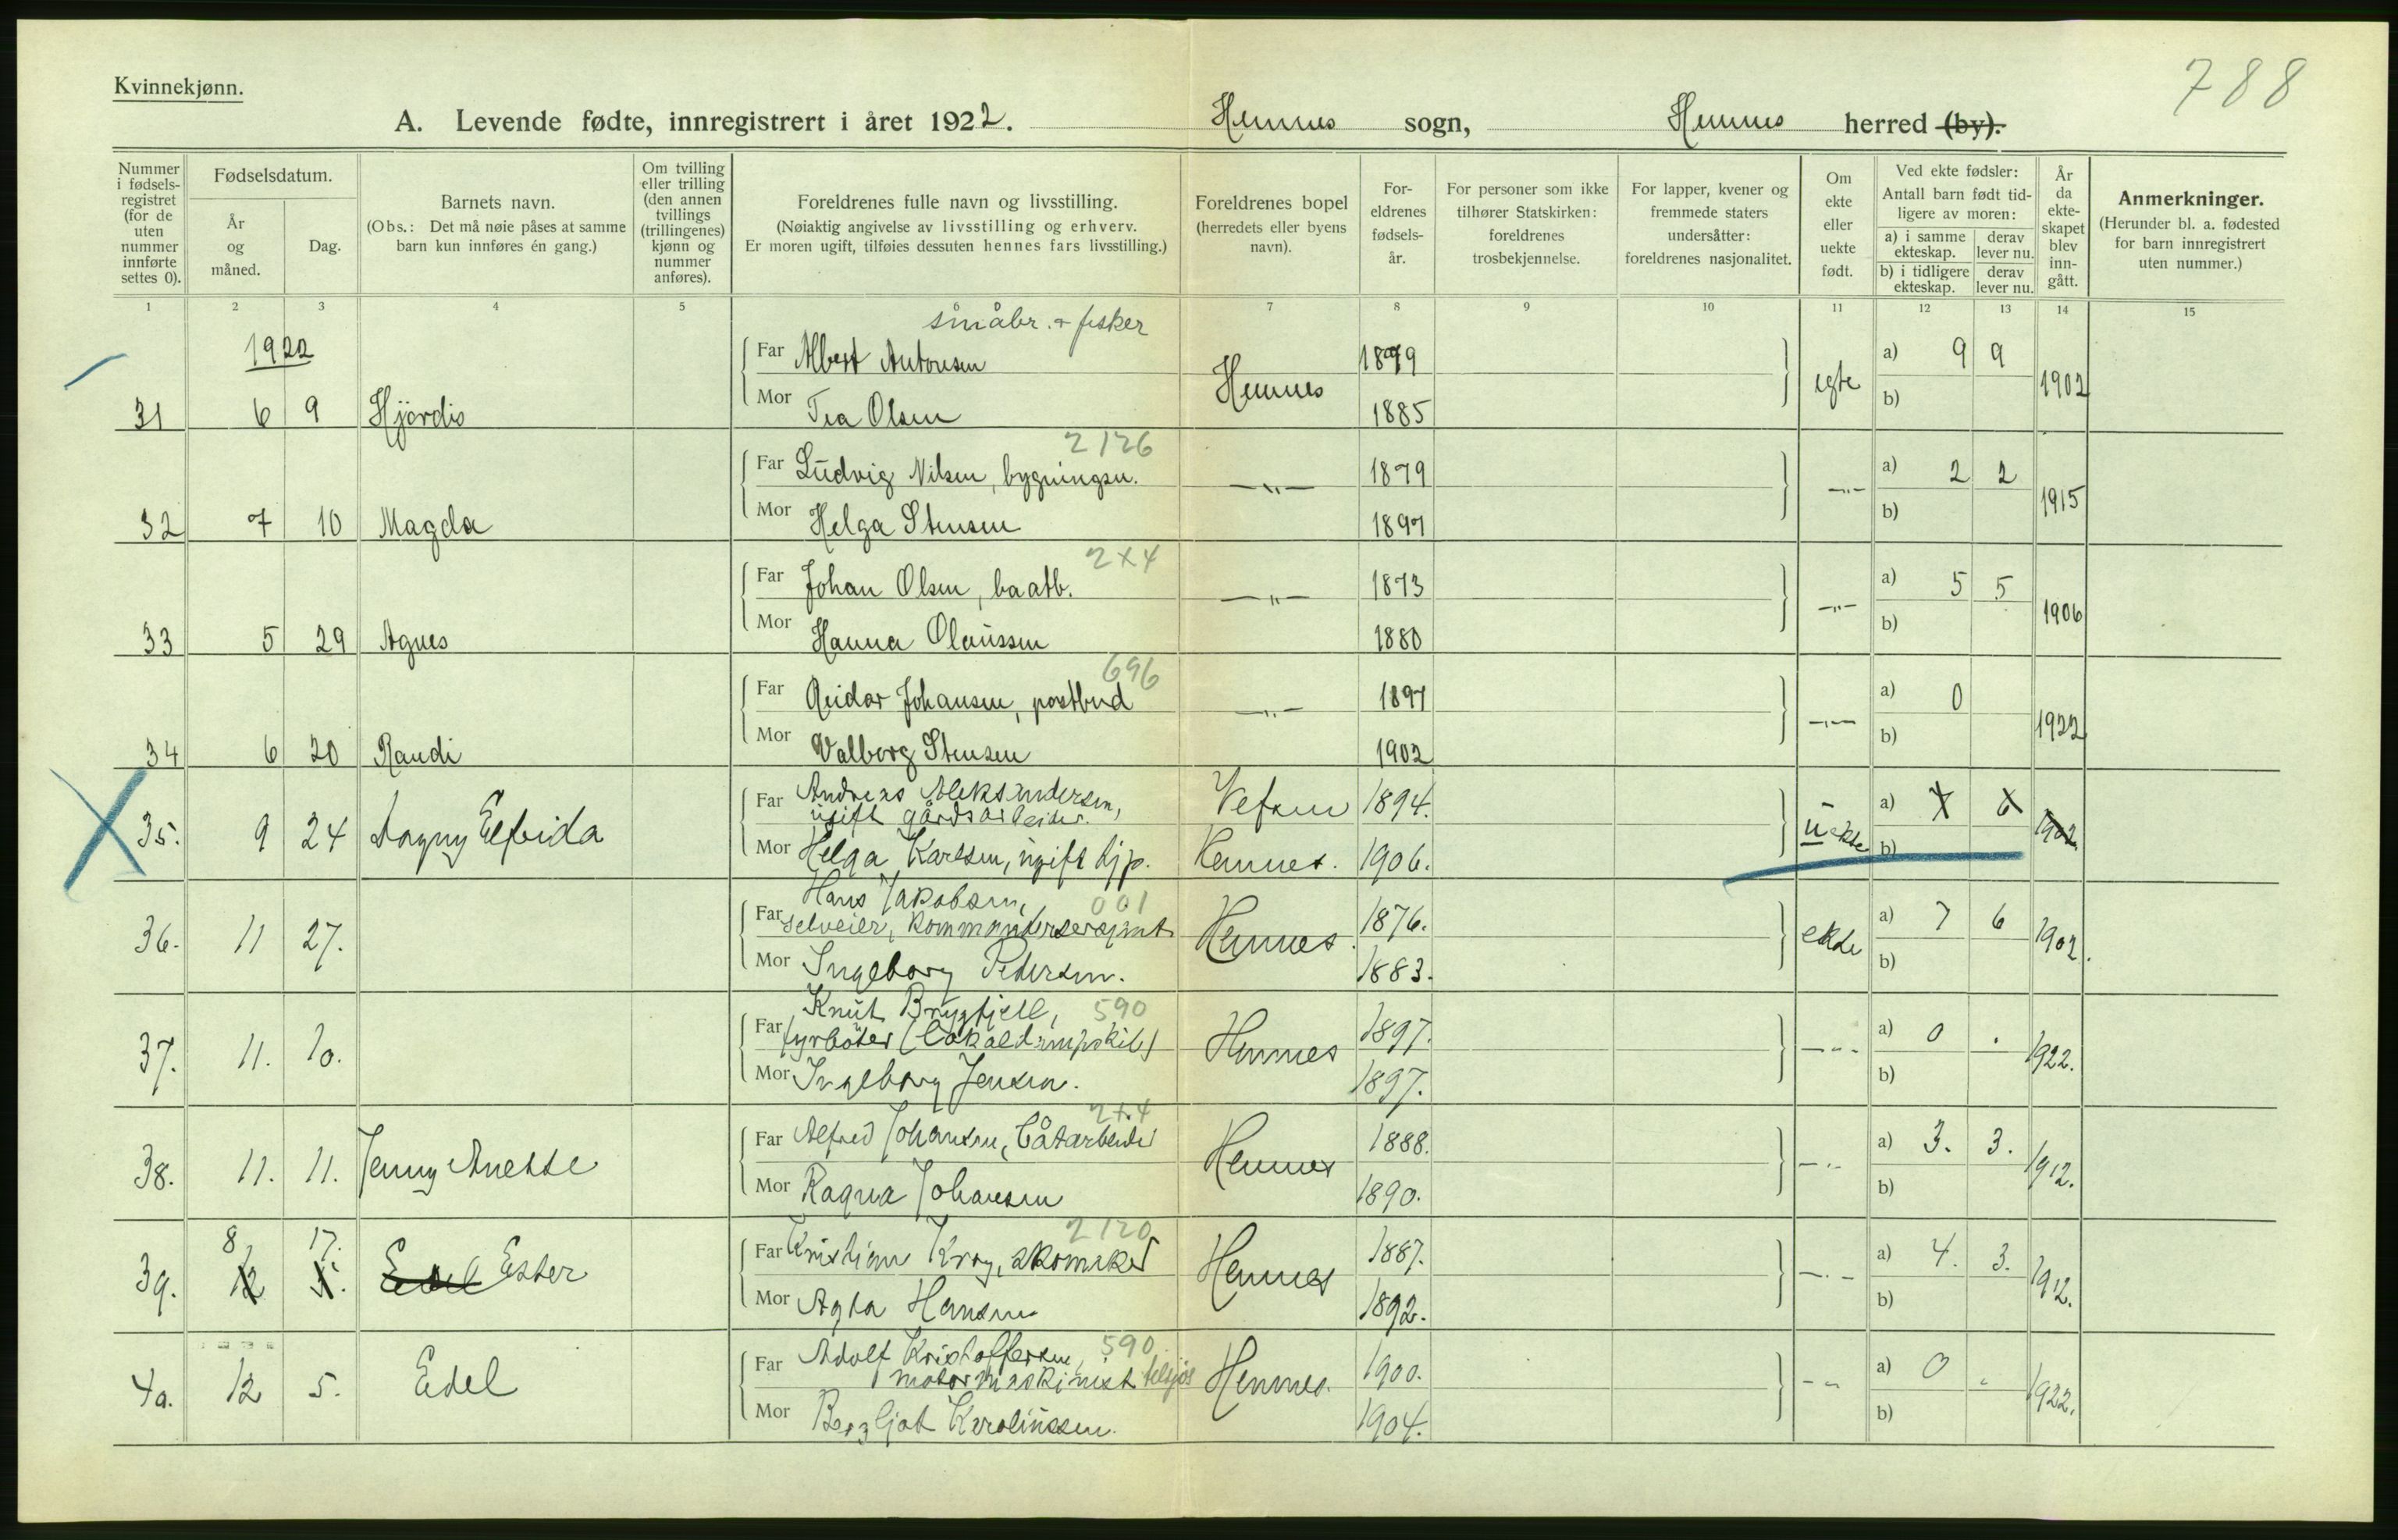 Kvinnekjønn.
788
A. Levende fødte, innregistrert i året 1922. Hemnes sogn, Hemnes herred (by).
Nummer i fødsels-registret (for de uten nummer innførte settes 0).
Fødselsdatum.
År og måned.
Dag.
Barnets navn.
(Obs.: Det må nøie påses at samme barn kun innføres én gang.)
Om tvilling eller trilling (den annen tvillings (trillingenes) kjønn og nummer anføres).
Foreldrenes fulle navn og livsstilling.
(Nøiaktig angivelse av livsstilling og erhverv.
Er moren ugift, tilføies dessuten hennes fars livsstilling.)
Foreldrenes bopel
(herredets eller byens navn).
For-eldrenes fødsels-år.
For personer som ikke tilhører Statskirken: foreldrenes trosbekjennelse.
For lapper, kvener og fremmede staters undersåtter: foreldrenes nasjonalitet.
Om ekte eller uekte født.
Ved ekte fødsler:
Antall barn født tid-ligere av moren:
a) i samme ekteskap.
derav lever nu.
b) i tidligere ekteskap.
derav lever nu.
År da ekte-skapet blev inn-gått.
Anmerkninger.
(Herunder bl. a. fødested for barn innregistrert uten nummer.)
1 2 3 4 5 6 7 8 9 10 11 12 13 14 15
1922
småbr. + fisker
Far Albert Antonsen 1879 a) 9 9
31 6 9 Hjördis Hemnes egte 1902
Mor Tea Olsen 1885 b)
2126
Far Ludvig Nilsen, bygningsn. 1879 a) 2 2
32 7 10 Magda —"— —"— 1915
Mor Helga Stensen 1897 b)
2x4
Far Johan Olsen, baatb. 1873 a) 5 5
33 5 29 Agnes —"— —"— 1906
Mor Hanna Olaussen 1880 b)
696
Far Reidar Johansen, postbud 1897 a) 0
34 6 20 Randi —"— —"— 1922
Mor Valborg Stensen 1902 b)
Far Andreas Aleksandersen, ugift gårdsarbeider. Vefsen 1894. a) 7 6
35. 9 24 Dagny Elfrida uekte 1902.
Mor Helga Karlsen, ugift hjp. Hemnes. 1906. b)
Hans Jakobsen, 001
Far selveier, kommandersersjant 1876. a) 7 6
36. 11 27. Hemnes. ekte 1902.
Mor Ingeborg Pedersen. 1883. b)
Knut Brygfjell, 590
Far fyrbøter (lokaldampskib) 1897. a) 0 .
37. 11. 10. Hemnes —"— 1922.
Mor Ingeborg Jensen. 1897. b)
2x4
Far Alfred Johansen, båtarbeider 1888. a) 3. 3.
38. 11. 11. Jenny Anette Hemnes —"— 1912.
Mor Ragna Johansen 1890. b)
2120
8 17.
Far Kristian Krog, skomaker 1887. a) 4. 3.
39. 12 5. Edel Ester Hemnes —"— 1912.
Mor Agta Hansen 1892. b)
590
Far Adolf Kristoffersen, motormaskinist 1900. a) 0 .
40. 12 5. Edel Hemnes. —"— 1922.
Mor Bergljot Karolinssen. 1904. b)